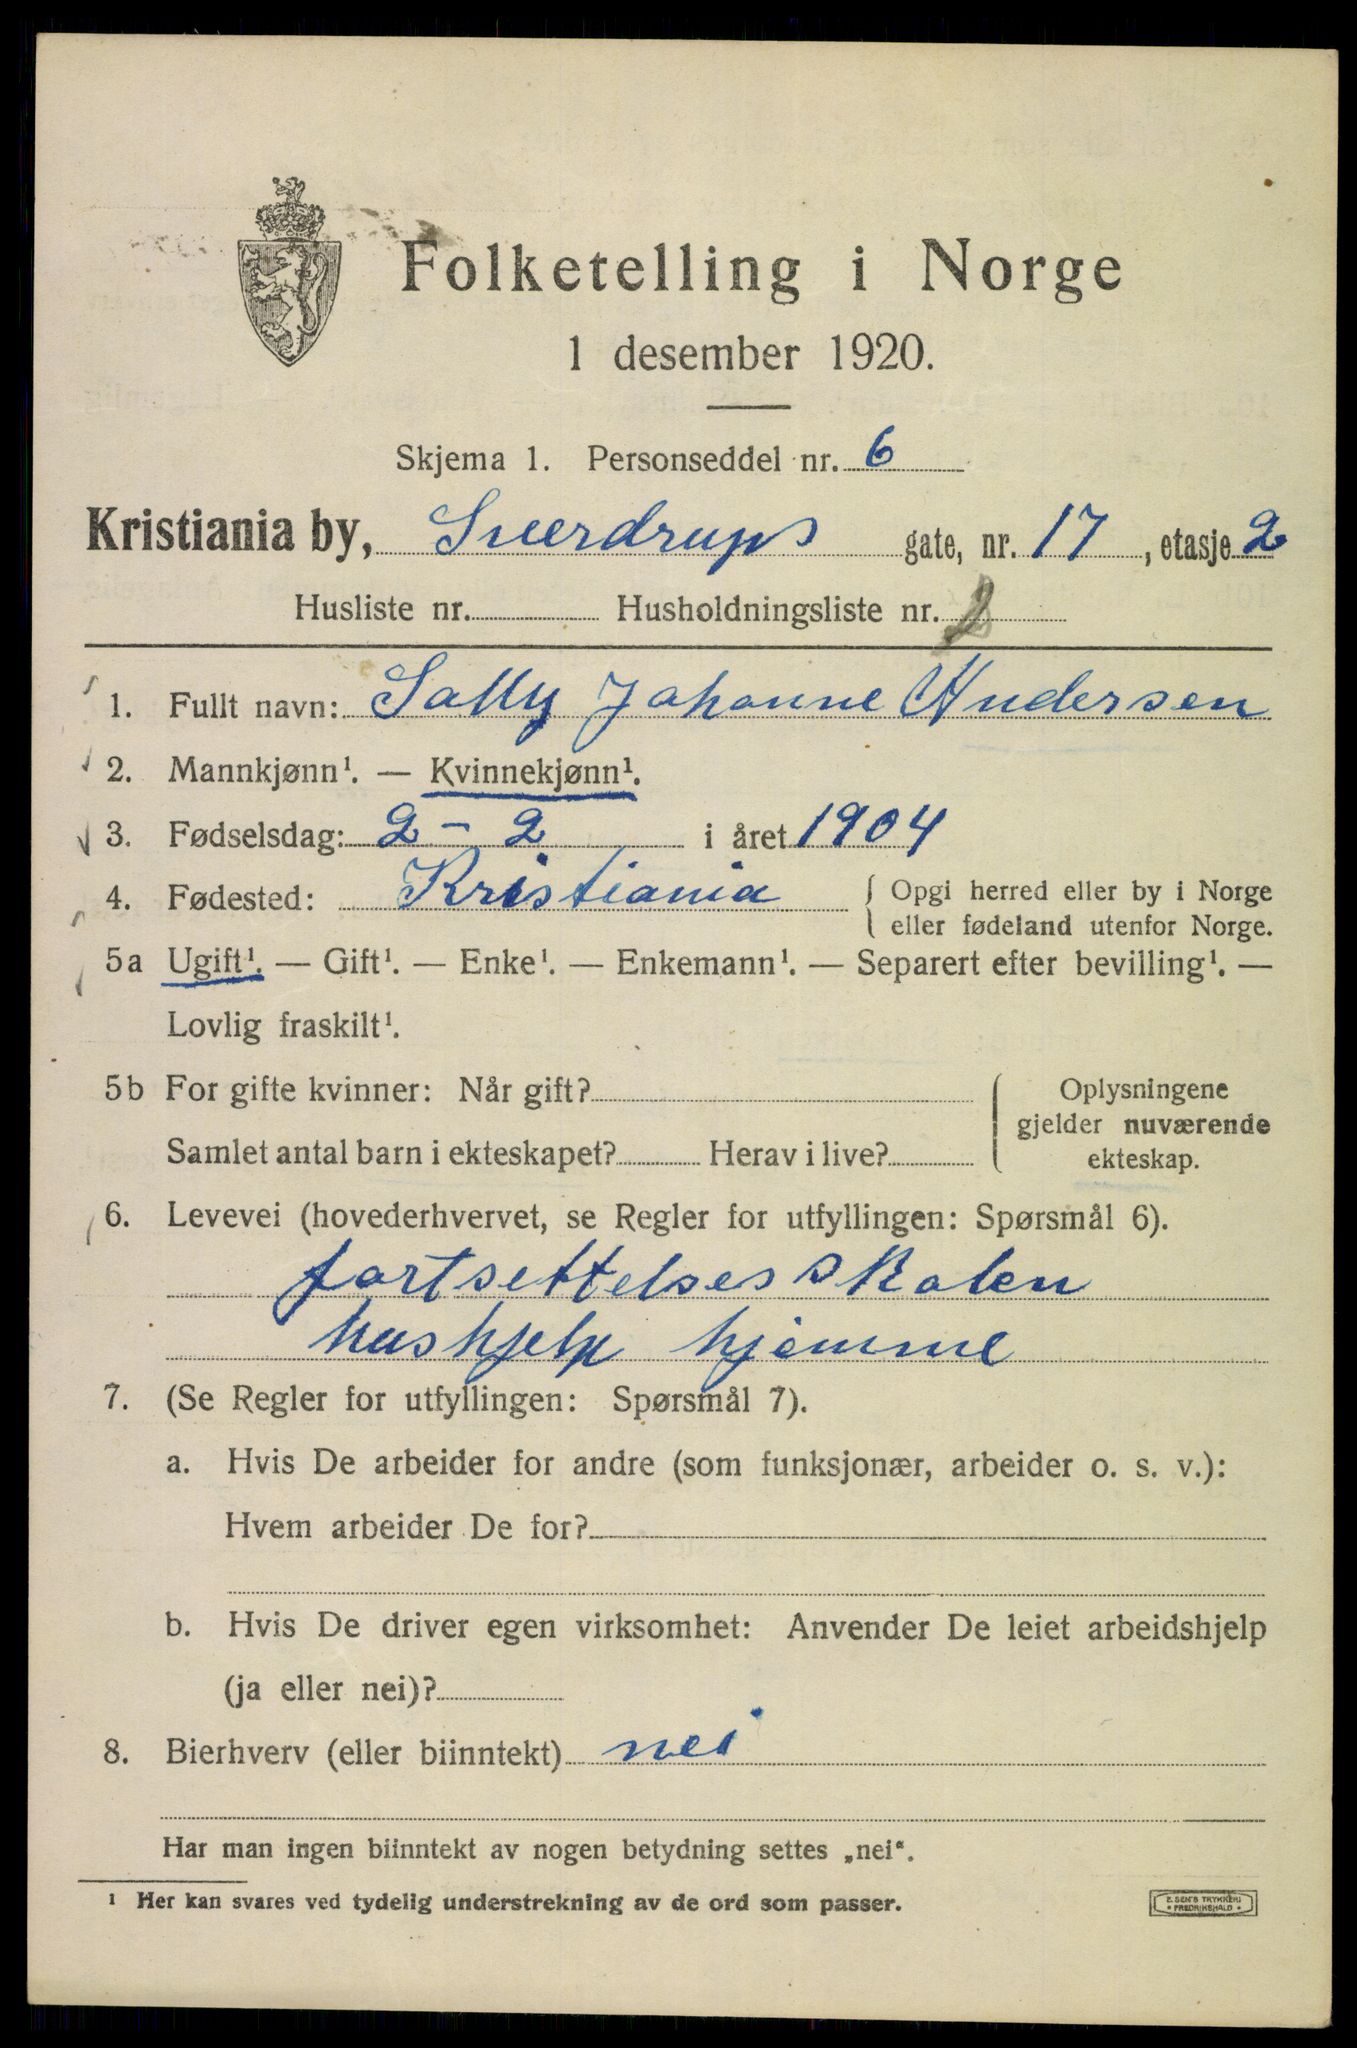 Folketelling i Norge
1 desember 1920.
Skjema 1. Personseddel nr. 6
Kristiania by, Sverdrups gate, nr. 17, etasje 2
Husliste nr. Husholdningsliste nr. 2
1. Fullt navn: Sally Johanne Andersen
2. Mannkjønn¹. — Kvinnekjønn¹.
3. Fødselsdag: 2 - 2 i året 1904
4. Fødested: Kristiania { Opgi herred eller by i Norge
eller fødeland utenfor Norge.
5a Ugift¹. — Gift¹. — Enke¹. — Enkemann¹. — Separert efter bevilling¹. —
Lovlig fraskilt¹.
5b For gifte kvinner: Når gift?
Samlet antal barn i ekteskapet? Herav i live?
Oplysningene
gjelder nuværende
ekteskap.
6. Levevei (hovederhvervet, se Regler for utfyllingen: Spørsmål 6).
fortsettelsesskolen
hushjelp hjemme
7. (Se Regler for utfyllingen: Spørsmål 7).
a. Hvis De arbeider for andre (som funksjonær, arbeider o. s. v.):
Hvem arbeider De for?
b. Hvis De driver egen virksomhet: Anvender De leiet arbeidshjelp
(ja eller nei)?
8. Bierhverv (eller biinntekt) nei
Har man ingen biinntekt av nogen betydning settes „nei“.
¹ Her kan svares ved tydelig understrekning av de ord som passer.
E. SEM'S TRYKKERI
* FREDRIKSHALD *